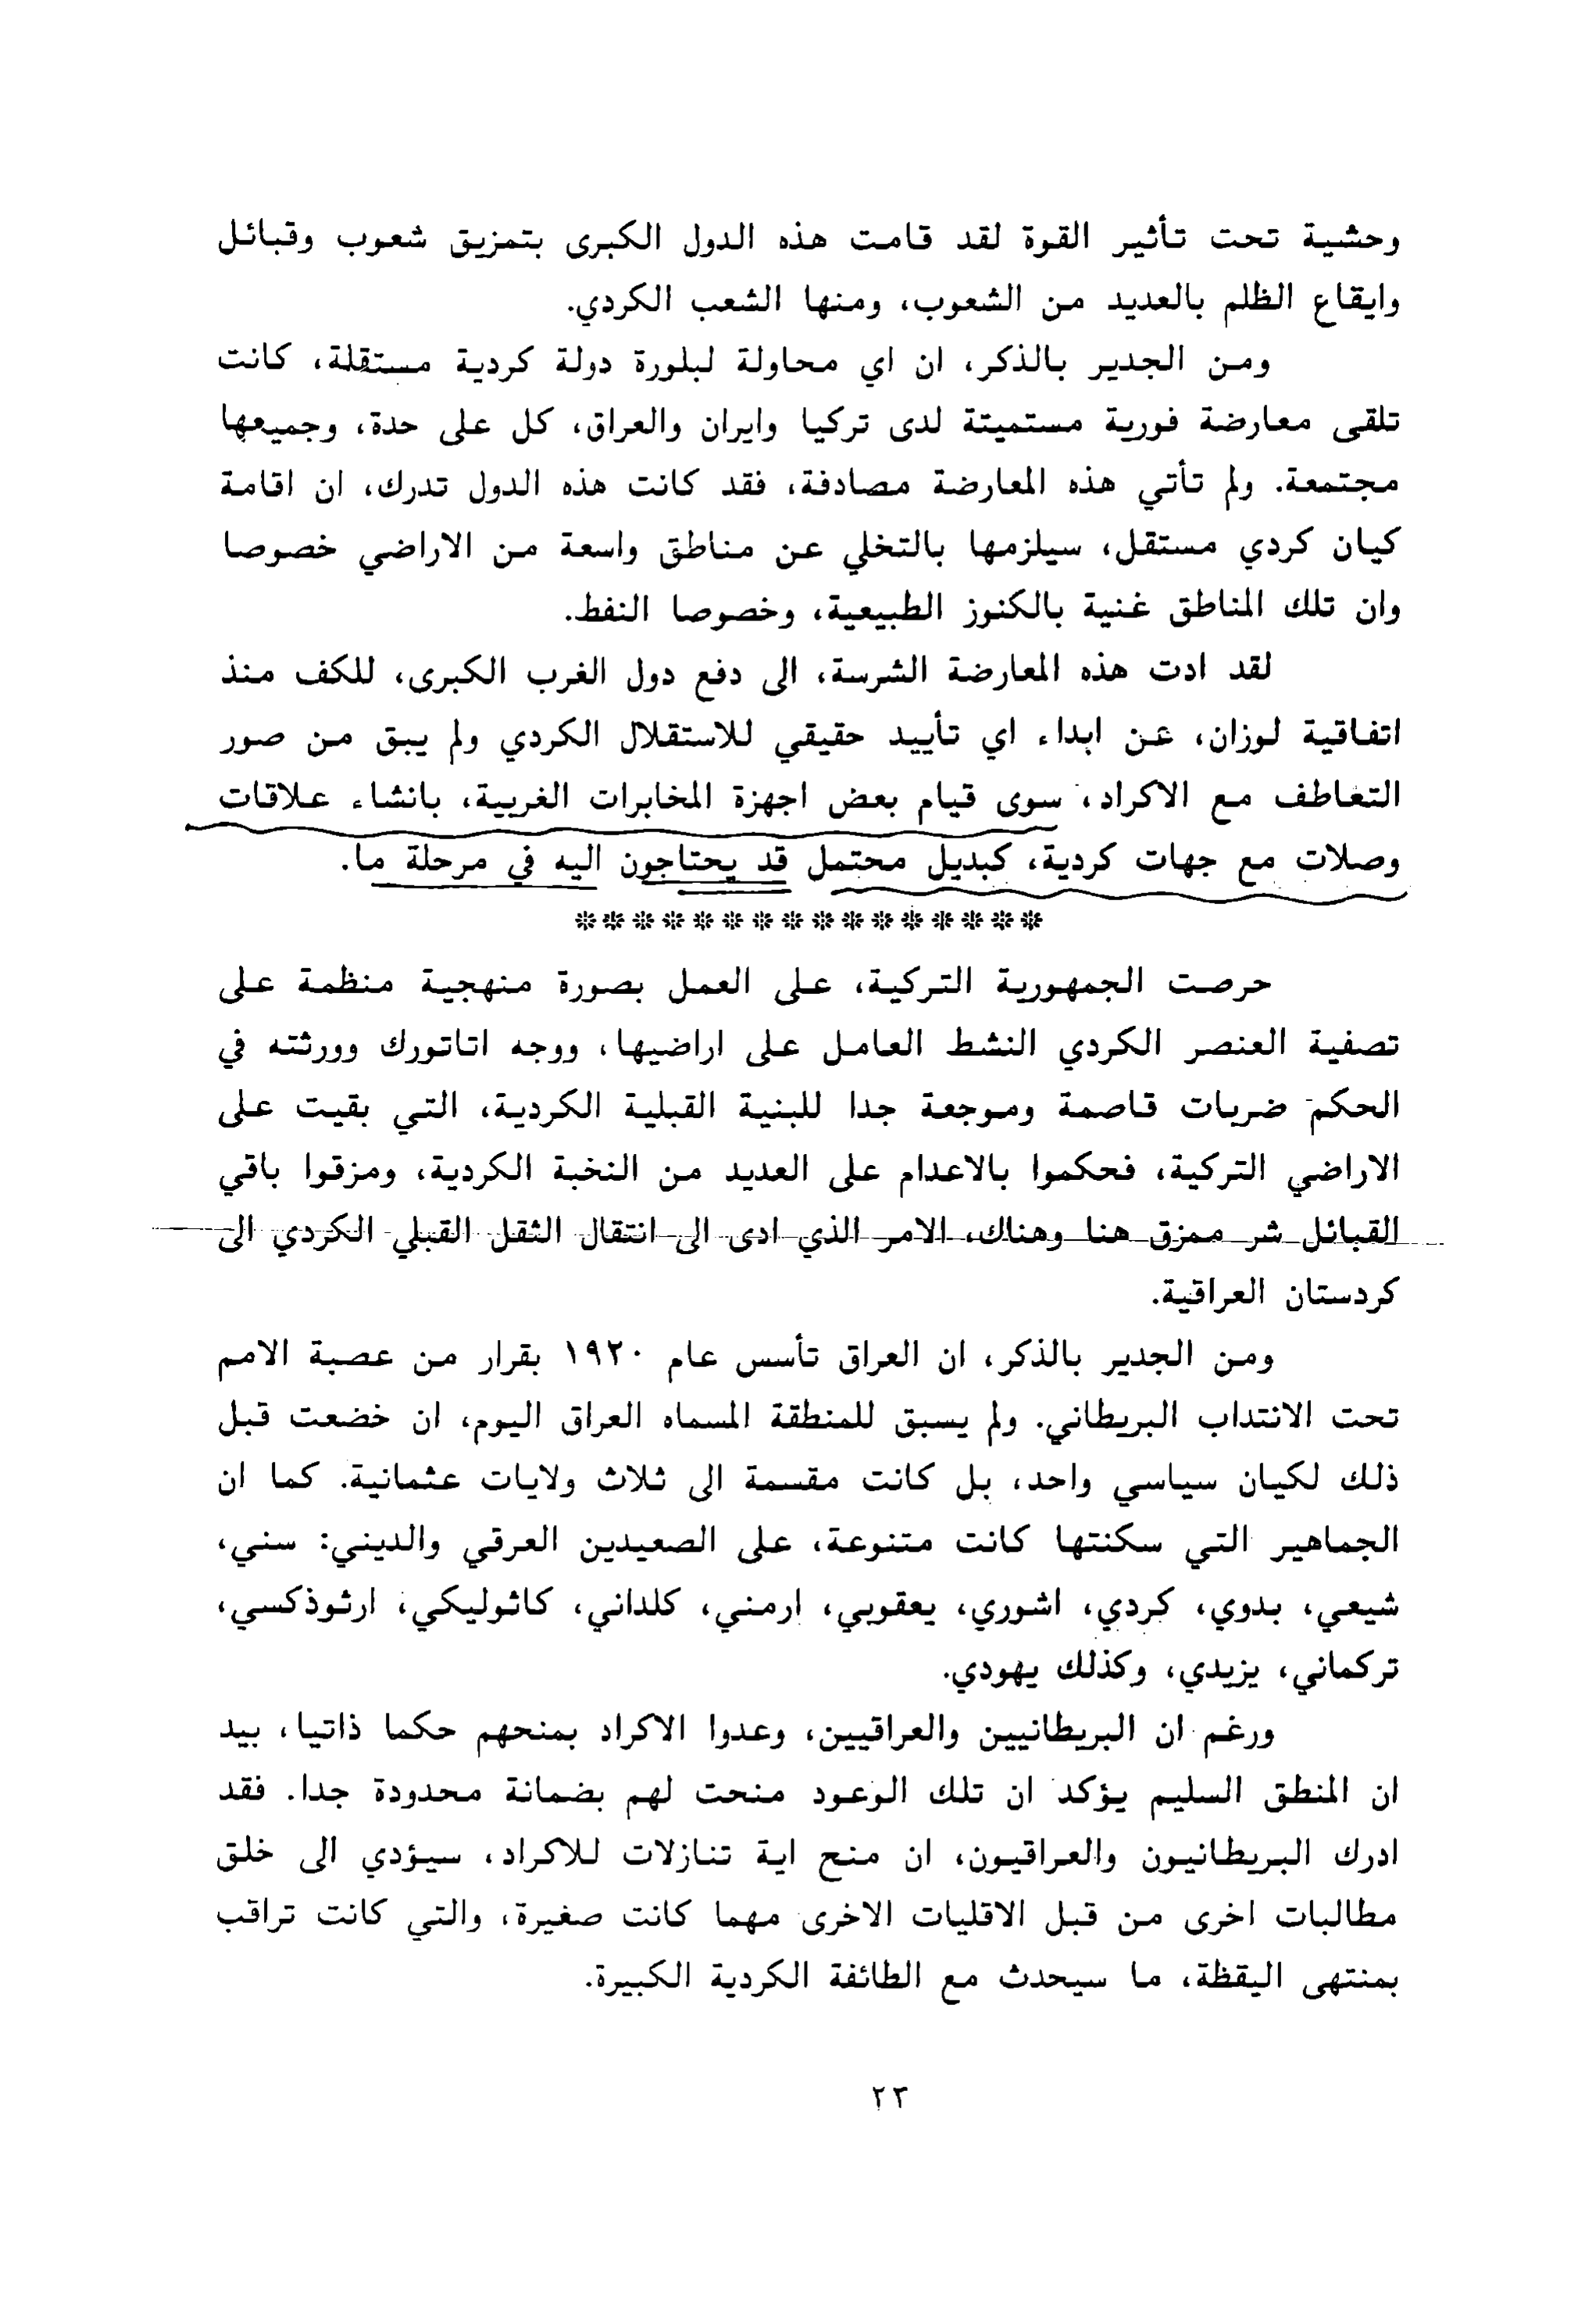 وحشية تحت تأثير القوة لقد قامت هذه الدول الكبرى بتمزيق شعوب وقبائل
وايقاع الظلم بالعديد من الشعوب، ومنها الشعب الكردي.
ومن الجدير بالذكر، ان اي محاولة لبلورة دولة كردية مستقلة، كانت
تلقى معارضة فورية مستميتة لدى تركيا وايران والعراق، كل على حدة، وجميعها
مجتمعة. ولم تأتي هذه المعارضة مصادفة، فقد كانت هذه الدول تدرك، ان اقامة
كيان كردي مستقل، سيلزمها بالتخلي عن مناطق واسعة من الاراضي خصوصا
وان تلك المناطق غنية بالكنوز الطبيعية، وخصوصا النفط.
لقد ادت هذه المعارضة الشرسة، الى دفع دول الغرب الكبرى، للكف منذ
اتفاقية لوزان، عن ابداء اي تأييد حقيقي للاستقلال الكردي ولم يبق من صور
التعاطف مع الاكراد، سوى قيام بعض اجهزة المخابرات الغربية، بانشاء علاقات
وصلات مع جهات كردية، كبديل محتمل قد يحتاجون اليه في مرحلة ما.
****************
حرصت الجمهورية التركية، على العمل بصورة منهجية منظمة على
تصفية العنصر الكردي النشط العامل على اراضيها، ووجه اتاتورك وورثته في
الحكم ضربات قاصمة وموجعة جدا للبنية القبلية الكردية، التي بقيت على
الاراضي التركية، فحكموا بالاعدام على العديد من النخبة الكردية، ومزقوا باقي
القبائل شر ممزق هنا وهناك، الامر الذي ادى الى انتقال الثقل القبلي الكردي الى
كردستان العراقية.
ومن الجدير بالذكر، ان العراق تأسس عام ١٩٢٠ بقرار من عصبة الامم
تحت الانتداب البريطاني. ولم يسبق للمنطقة المسماه العراق اليوم، ان خضعت قبل
ذلك لكيان سياسي واحد، بل كانت مقسمة الى ثلاث ولايات عثمانية. كما ان
الجماهير التي سكنتها كانت متنوعة، على الصعيدين العرقي والديني: سني،
شيعي، بدوي، كردي، اشوري، يعقوبي، ارمني، كلداني، كاثوليكي، ارثوذكسي،
تركماني، يزيدي، وكذلك يهودي.
ورغم ان البريطانيين والعراقيين، وعدوا الاكراد بمنحهم حكما ذاتيا، بيد
ان المنطق السليم يؤكد ان تلك الوعود منحت لهم بضمانة محدودة جدا. فقد
ادرك البريطانيون والعراقيون، ان منح اية تنازلات للاكراد، سيؤدي الى خلق
مطالبات اخرى من قبل الاقليات الاخرى مهما كانت صغيرة، والتي كانت تراقب
بمنتهى اليقظة، ما سيحدث مع الطائفة الكردية الكبيرة.
٢٣